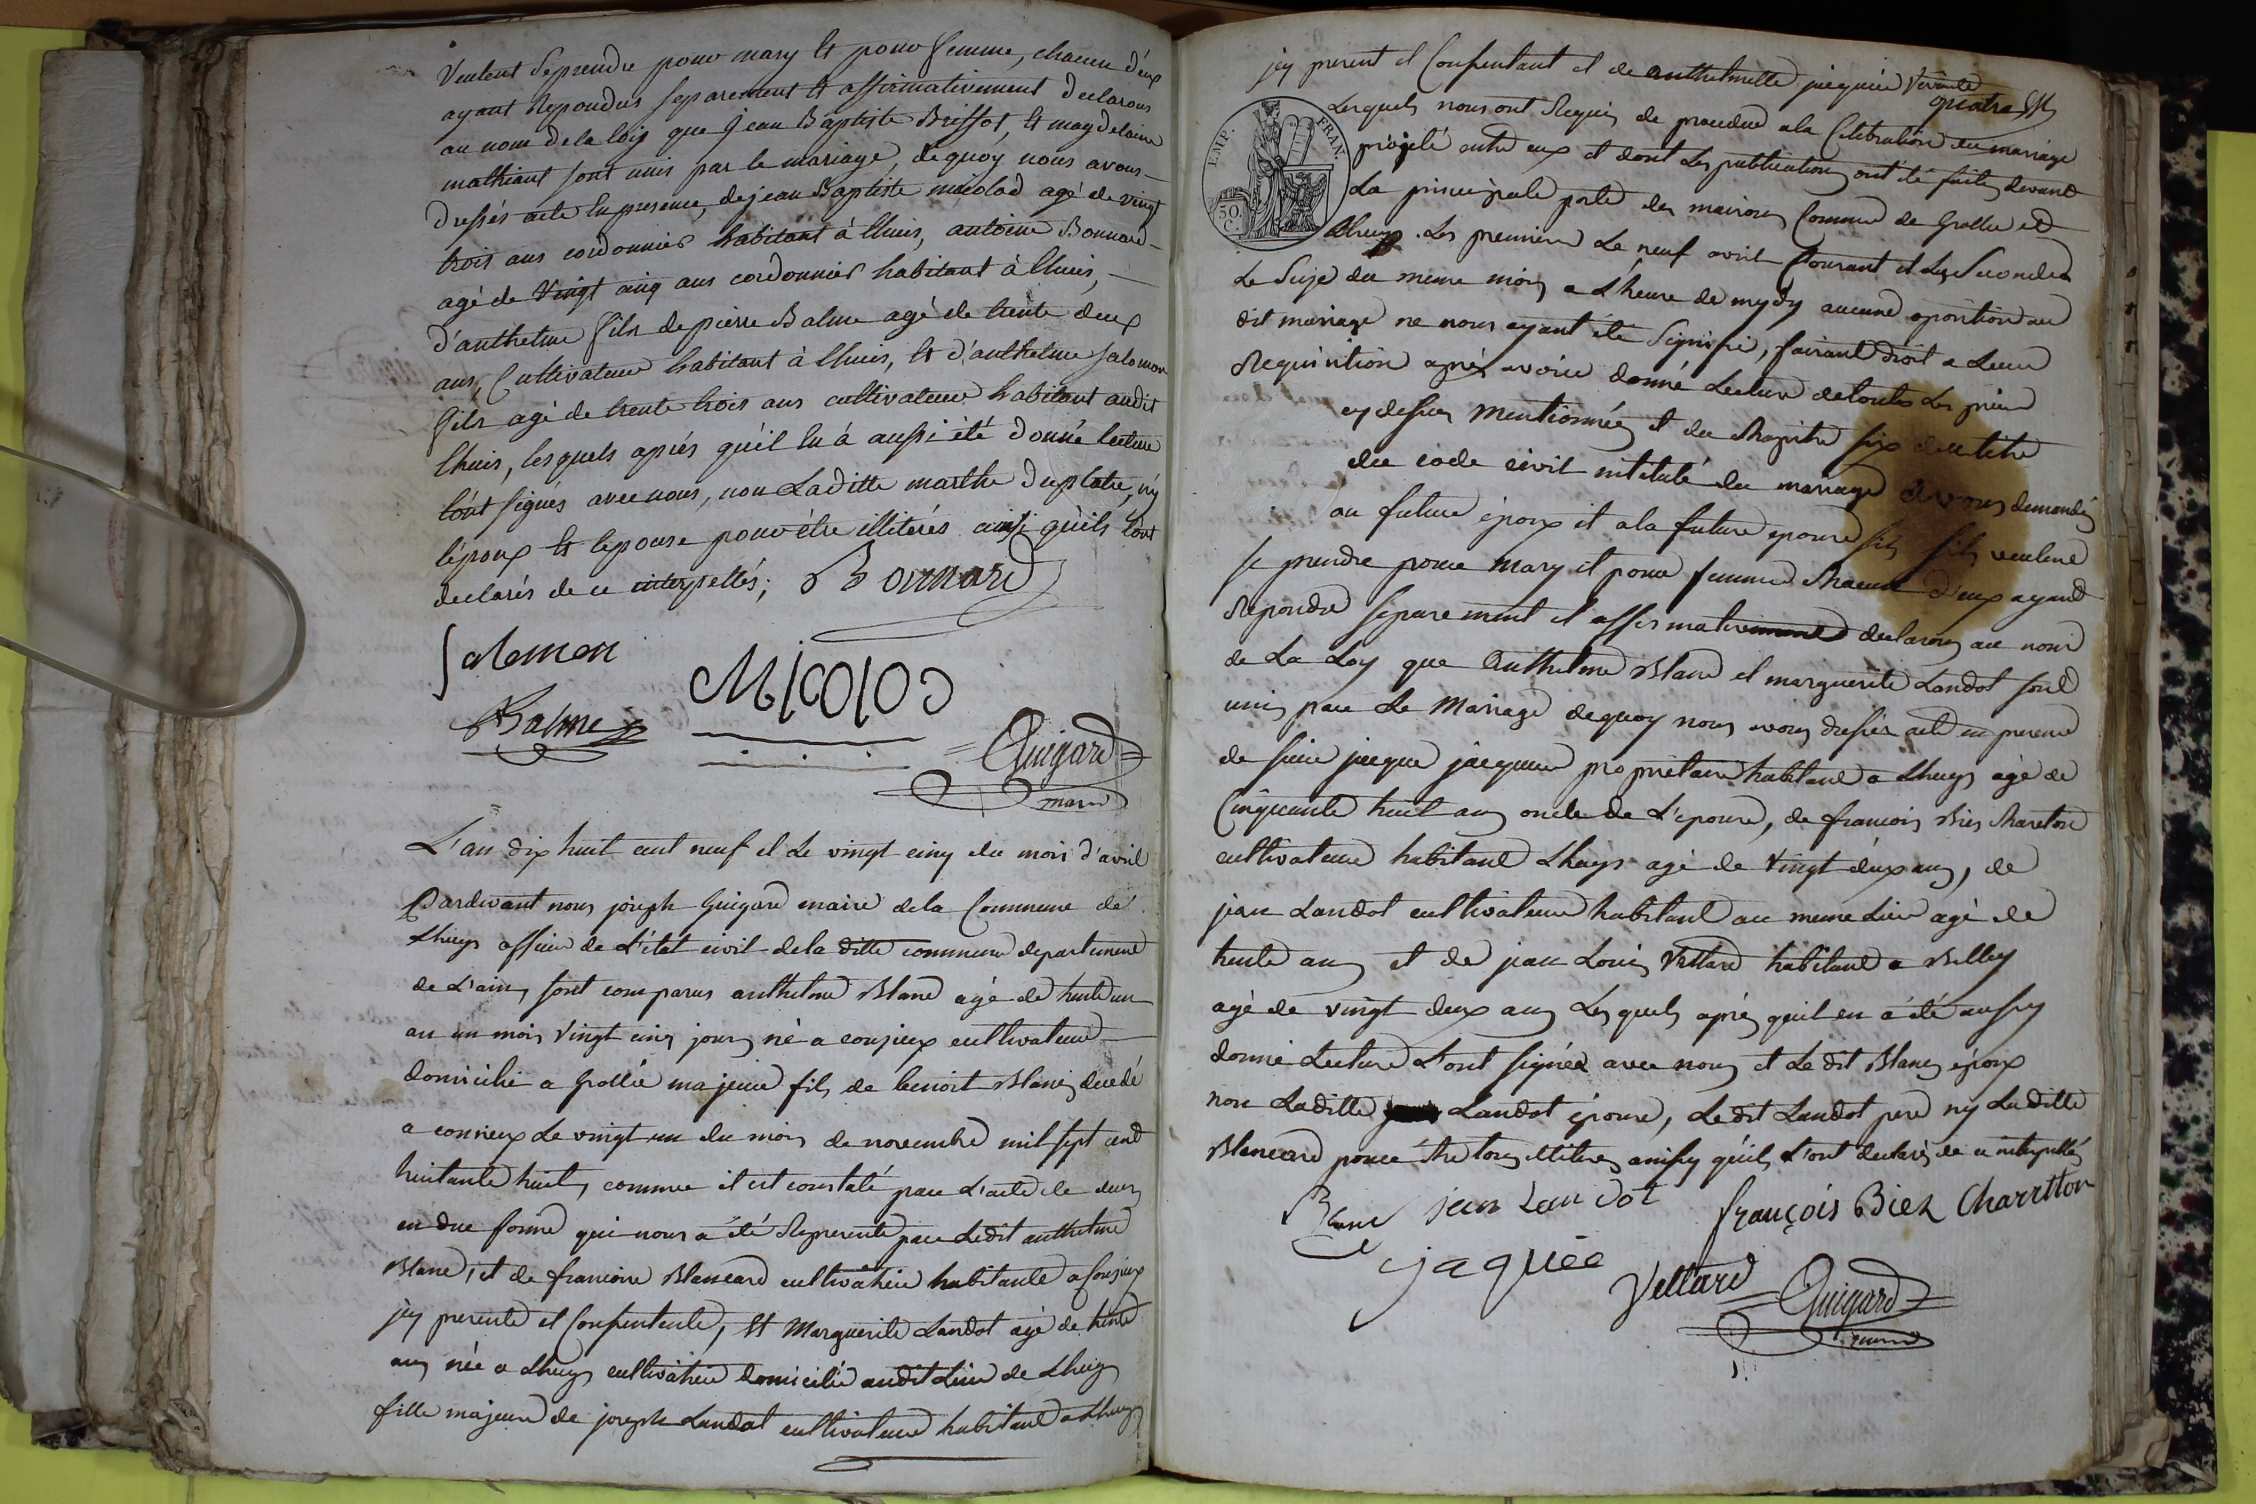 Veulent Seprendre pour mary Et pour femme, chacun d'éux
ayant Repondus separement Et affirmativement declarons
au nom dela loix que Jean Baptiste Brissot, Et magdelaine
mathiant sont unis par le mariage, de quóy nous avons
dressés acte En presence, de jean Baptiste micolod agé de vingt
trois ans cordonnier habitant à lhuis, antoine Bonnard
agé de Vingt cinq ans cordonnier habitant à lhuis,
d'anthelme fils de pierre Balme agé de trente deux
ans, Cultivateur habitant à lhuis, Et d'anthelme Salomon
fils agé de trente trois ans cultivateur habitant audit
lhuis, lesquels aprés qu'il En á aussi été donné lecture
l'ont signés avec nous, non Laditte marthe Duplatre, ny
l'époux Et lepouse pour étre illiterés ainsi qu'ils l'ont
declarés de ce interpellés; Bonnard
Salomon
Micolod
Balme
Guigard
maire
L'an dix huit cent neuf et Le vingt cinq du mois d'avril
Pardevant nous joseph Guigard maire dela Commune de
Lhuys officier de L'état civil dela ditte commune departement
de L'ain, sont comparus anthelme Blanc agé de trente un
an un mois vingt cinq jours né a conzieux cultivateur
domicilié a Grollée majeur fils de benoit Blanc, decedé
a conzieux Le vingt un du mois de novembre mil sept cent
huitante huit, comme il est constaté par L'acte de deces
en due forme qui nous a été Representé par Ledit anthelme
Blanc, et de francoise Blancard cultivatrice habitante a Conzieux
jcy presente et Consentente, Et Marguerite Landot agé de trente
ans née a Lhuys cultivatrice domicilié audit Lieu de Lhuys
fille majeure de joseph Landot cultivateur habitant a Lhuys
jcy present et Consentant et de anthelmette jacquiée vivante
quatre
EMP. FRAN.
50. C.
Lesquels nous ont Requis de proceder a la Celebration du mariage
projeté entre eux et dont Les publications ont été faites devant
La principale porte des maisons Commune de Grollée et
Lhuys. Les premieres Le neuf avril Courant et Les Secondes
Le Seize du meme mois a L'heure de mydy aucune oposition au
dit mariage ne nous ayant été Signifié, faisant droit a Leur
Requisition aprés avoir donné Lecture de toutes Les pieces
cy dessus Mentionnées et du Chapitre six du titre
du code civil intitulé du mariage avons demandés
au futur époux et a la future epouse sils veulent
Se prendre pour Mary et pour femme Chacun d'eux ayant
Repondu separement et affirmativement declarons au nom
de La Loy que Anthelme Blanc et marguerite Landot sont
unis par Le Mariage de quoy nous avons dressés acte en presence
de sieur jacque jacquiee proprietaire habitant a Lhuys agé de
Cinquante huit ans oncle de L'epouse, de francois Biez Chareton
cultivateur habitant Lhuys agé de Vingt déux ans, de
jean Landot cultivateur habitant au meme Lieu agé de
trente ans et de jean Louis Vettard habitant a Belley
agé de vingt deux ans Les quels aprés quil en á été aussy
donné Lecture L'ont signés avec nous et Le dit Blanc époux
non Laditte Landot épouse, Ledit Landot pere ny Laditte
Blancard pour étre tous illiteres ainsy qu'ils L'ont declarés de ce interpellés
Blanc jean Landot françois Biez Charetton
jaquiée
Vettard Guigard
maire